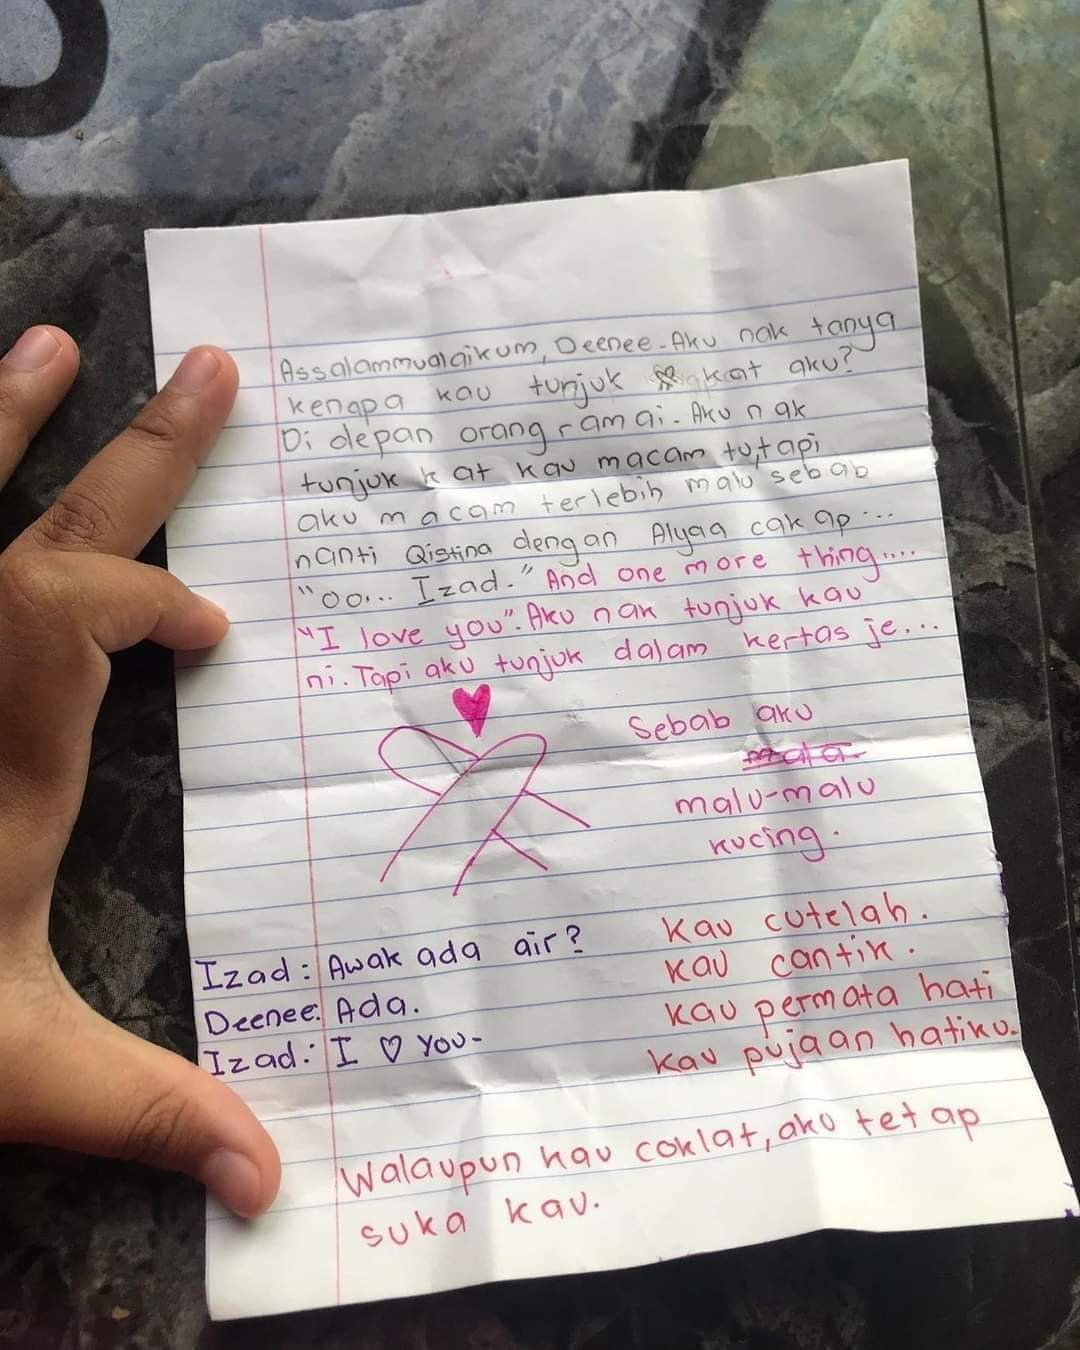 Assalammualaikum, Deenee. Aku nak tanya
kenapa kau tunjuk kat aku?
Di depan orang ramai. Aku nak
tunjuk kat kau macam tu, tapi
aku macam terlebih malu sebab
nanti Qistina dengan Alyaa cakap...
"oo... Izad." And one more thing....
"I love you". Aku nak tunjuk kau
ni. Tapi aku tunjuk dalam kertas je...
Sebab aku
mala
malu-malu
kucing.
Izad: Awak ada air?
Deenee: Ada.
Izad: I ♡ You-
Kau cutelah.
Kau cantik.
Kau permata hati
Kau pujaan hatiku.
Walaupun kau coklat, aku tetap
suka kau.